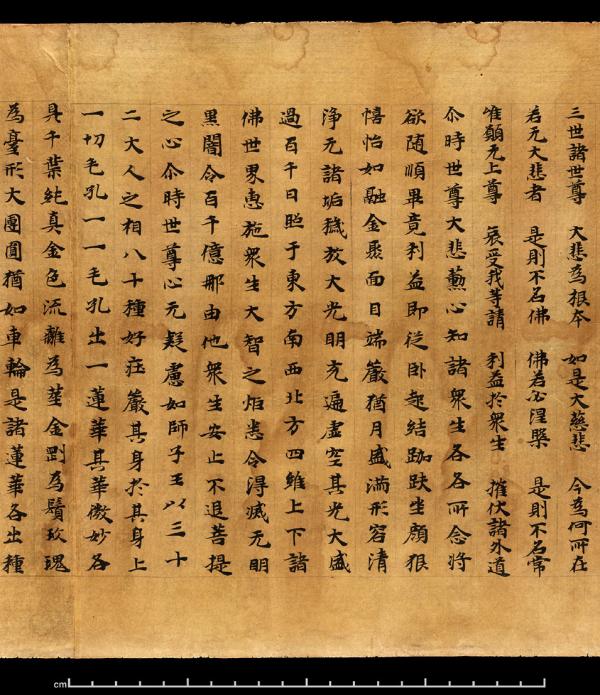 三世諸世尊 大悲為根本 如是大慈悲 今為何所在
若无大悲者 是則不名佛 佛若必涅槃 是則不名常
唯願无上尊 哀受我等請 利益於衆生 摧伏諸外道
尒時世尊大悲勳心知諸衆生各各所念將
欲随順畢竟利益即従卧起結跏趺坐顔狠
憘怡如融金聚面目端嚴猶月盛滿形容清
浄无諸垢穢放大光明充遍虚空其光大盛
過百千日照于東方南西北方四維上下諸
佛世界惠施衆生大智之炬悉令得滅无明
黒闇令百千億那由他衆生安止不退菩提
之心尒時世尊心无疑慮如師子王以三十
二大人之相八十種好庄嚴其身於其身上
一切毛孔一一毛孔出一蓮華其華微妙各
具千葉純真金色流離為莖金㓻為鬚玫瑰
為臺形大團圓猶如車輪是諸蓮華各出種
cm